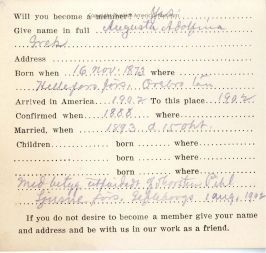 Will you become a member? Yes
Give name in full Augusta Adolfina
Address
Born when 16 Nov. 1873 where
Hellefors förs. Örebro län
Arrived in America 1902 To this place 1902
Confirmed when 1888 where
Married, when 1893 d. 15 okt.
Children born where
born where
born where
Med betyg
1 aug. 1902
If you do not desire to become a member give your name
and address and be with us in our work as a friend.